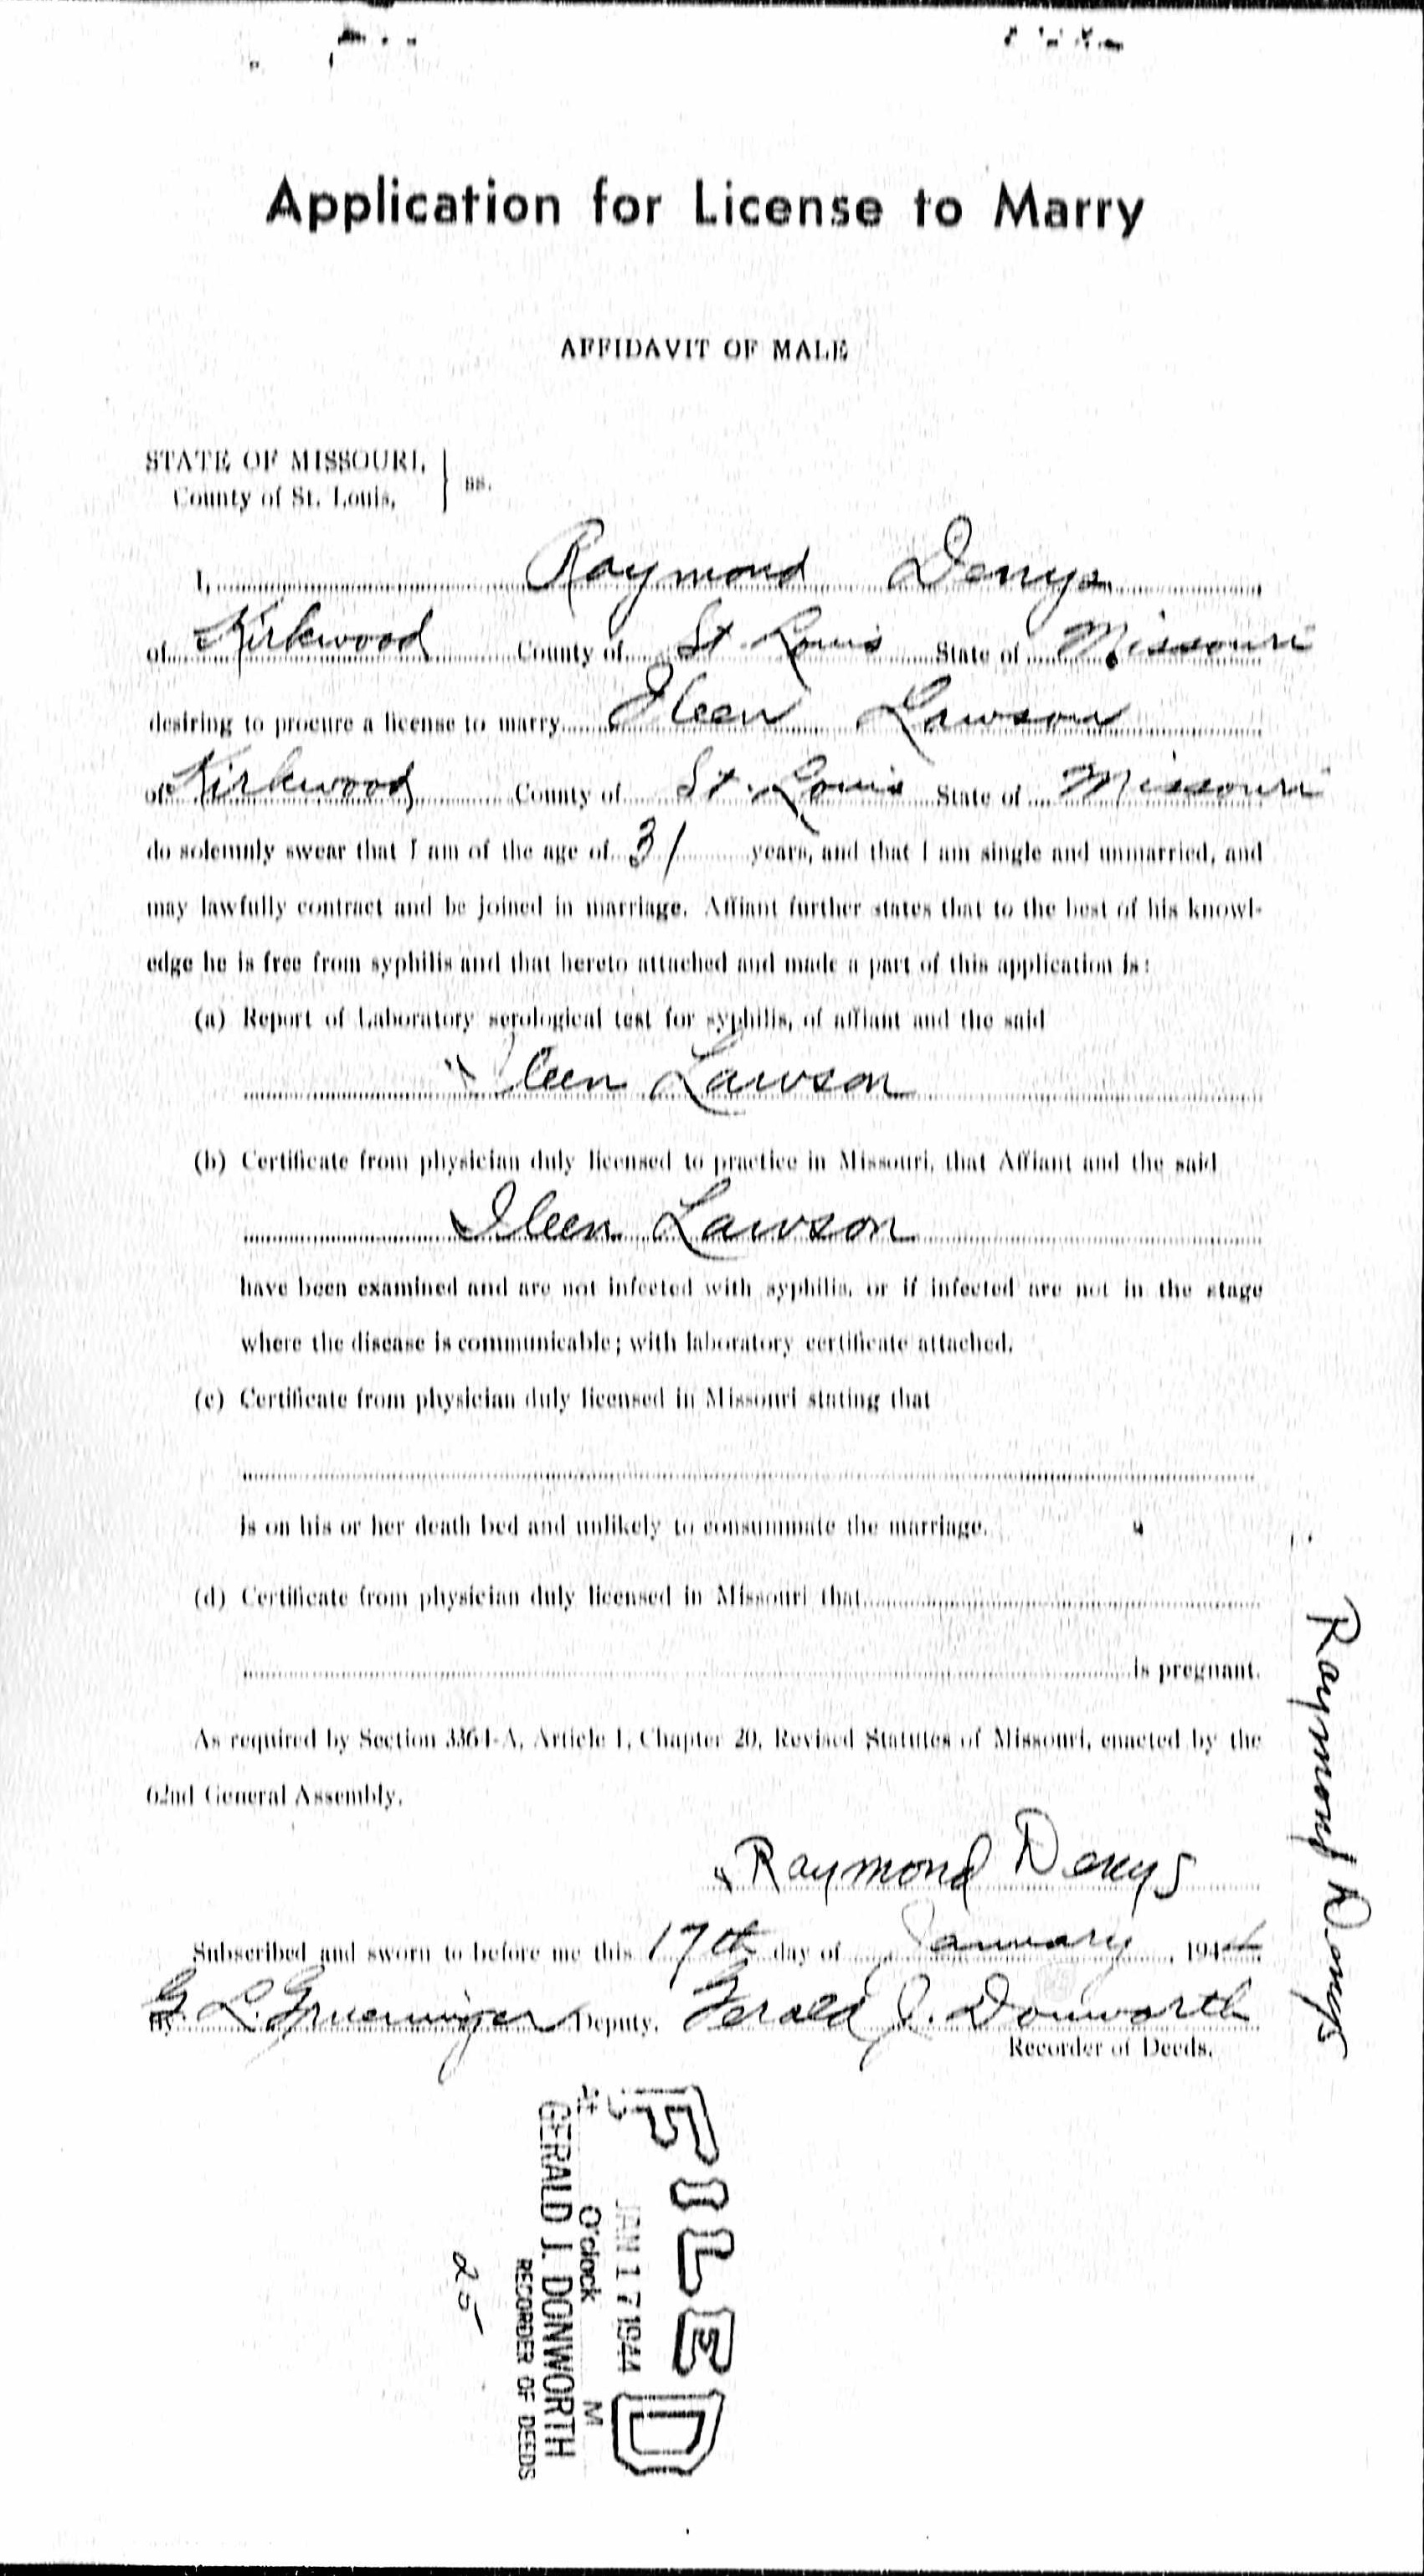 Application for License to Marry
AFFIDAVIT OF MALE
STATE OF MISSOURI,
County of St. Louis,
} ss.
I, Raymond Denys
of Kirkwood County of St Louis State of Missouri
desiring to procure a license to marry Ileen Lawson
of Kirkwood County of St. Louis State of Missouri
do solemnly swear that I am of the age of 31 years, and that I am single and unmarried, and
may lawfully contract and be joined in marriage. Affiant further states that to the best of his knowl-
edge he is free from syphilis and that hereto attached and made a part of this application is:
(a) Report of Laboratory serological test for syphilis, of affiant and the said
Ileen Lawson
(b) Certificate from physician duly licensed to practice in Missouri, that Affiant and the said
Ileen Lawson
have been examined and are not infected with syphilis, or if infected are not in the stage
where the disease is communicable; with laboratory certificate attached.
(c) Certificate from physician duly licensed in Missouri stating that
is on his or her death bed and unlikely to consummate the marriage.
(d) Certificate from physician duly licensed in Missouri that
is pregnant.
As required by Section 3364-A, Article 1, Chapter 20, Revised Statutes of Missouri, enacted by the
62nd General Assembly.
Raymond Denys
Subscribed and sworn to before me this 17th day of January, 1944
G. L. Grueninger Deputy. Gerald J. Donworth
Recorder of Deeds.
Raymond Denys
FILED
JAN 17 1944
O'clock M
GERALD J. DONWORTH
RECORDER OF DEEDS
25